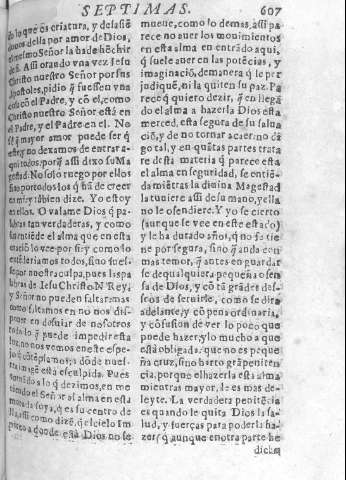 SEPTIMAS.
607
do lo que es criatura, y desasiē
donos della por amor de Dios,
el mesmo Señor la ha de hēchir
de si. Assi orando vna vez Iesu
Christo nuestro Señor por sus
Apostoles, pidio q̃ fuessen vna
cosa cō el Padre, y cō el, como
Christo nuestro Señor està en
el Padre, y el Padre en el. No
sè q̃ mayor amor puede ser q̃
este, y no dexamos de entrar a-
qui todos, porq̃ assi dixo su Ma
gestad. No solo ruego por ellos
sino por todos los q̃ hã de creer
en mi, y tābien dize. Yo estoy
en ellos. O valame Dios q̃ pa-
labras tan verdaderas, y como
las entiēde el alma que en esta
oraciō lo vee por si, y como lo
entēderiamos todos, sino fues-
se por nuestra culpa, pues las pa
labras de Iesu Christo N. Rey,
y Señor no pueden faltar: mas
como faltamos en no nos dis-
poner en desuiar de nosotros
todo lo q̃ puede impedir esta
luz, no nos vemos en este espe-
jo q̃ cōtēplamos, dōde nues-
tra imagē està esculpida. Pues
tornādo a lo q̃ deziamos, en me
tiendo el Señor al alma en esta
morada suya, q̃ es su centro de
Assi como dizē, q̃ el cielo Im
pireo a donde està Dios no se
mueue, como lo demas, assi pa
rece no auer los mouimientos
en esta alma en entrādo aqui,
q̃ suele auer en las potēcias, y
imaginaciō, de manera q̃ le per
judiquē, ni la quiten su paz. Pa
rece q̃ quiero dezir, q̃ en llegã
do el alma a hazerla Dios esta
merced, esta segura de su salua
ciō, y de no tornar a caer: no di
go tal, y en quātas partes trata
re desta materia q̃ parece està
el alma en seguridad, se entiē-
da miētras la diuina Magestad
la tuuiere assi de su mano, y ella
no le ofendiere. Y yo se cierto
(aunque se vee en este estado)
y le ha durado años, q̃ no se tie
ne por segura, sino q̃ anda con
mas temor, q̃ antes en guardar
se de qualquiera pequeña ofen
sa de Dios, y cō tã grādes des-
seos de seruirle, como se dira
adelante, y cō pena ordinaria,
y cōfusion de ver lo poco que
puede hazer, y lo mucho a que
està obligada: que no es peque
ña cruz, sino harto grā peniten
cia, porque el hazerla esta alma
mientras mayor, le es mas de-
leyte. La verdadera penitēcia
es quando le quita Dios la sa-
lud, y fuerças para poderla ha-
zer: q̃ aunque en otra parte he
dicho